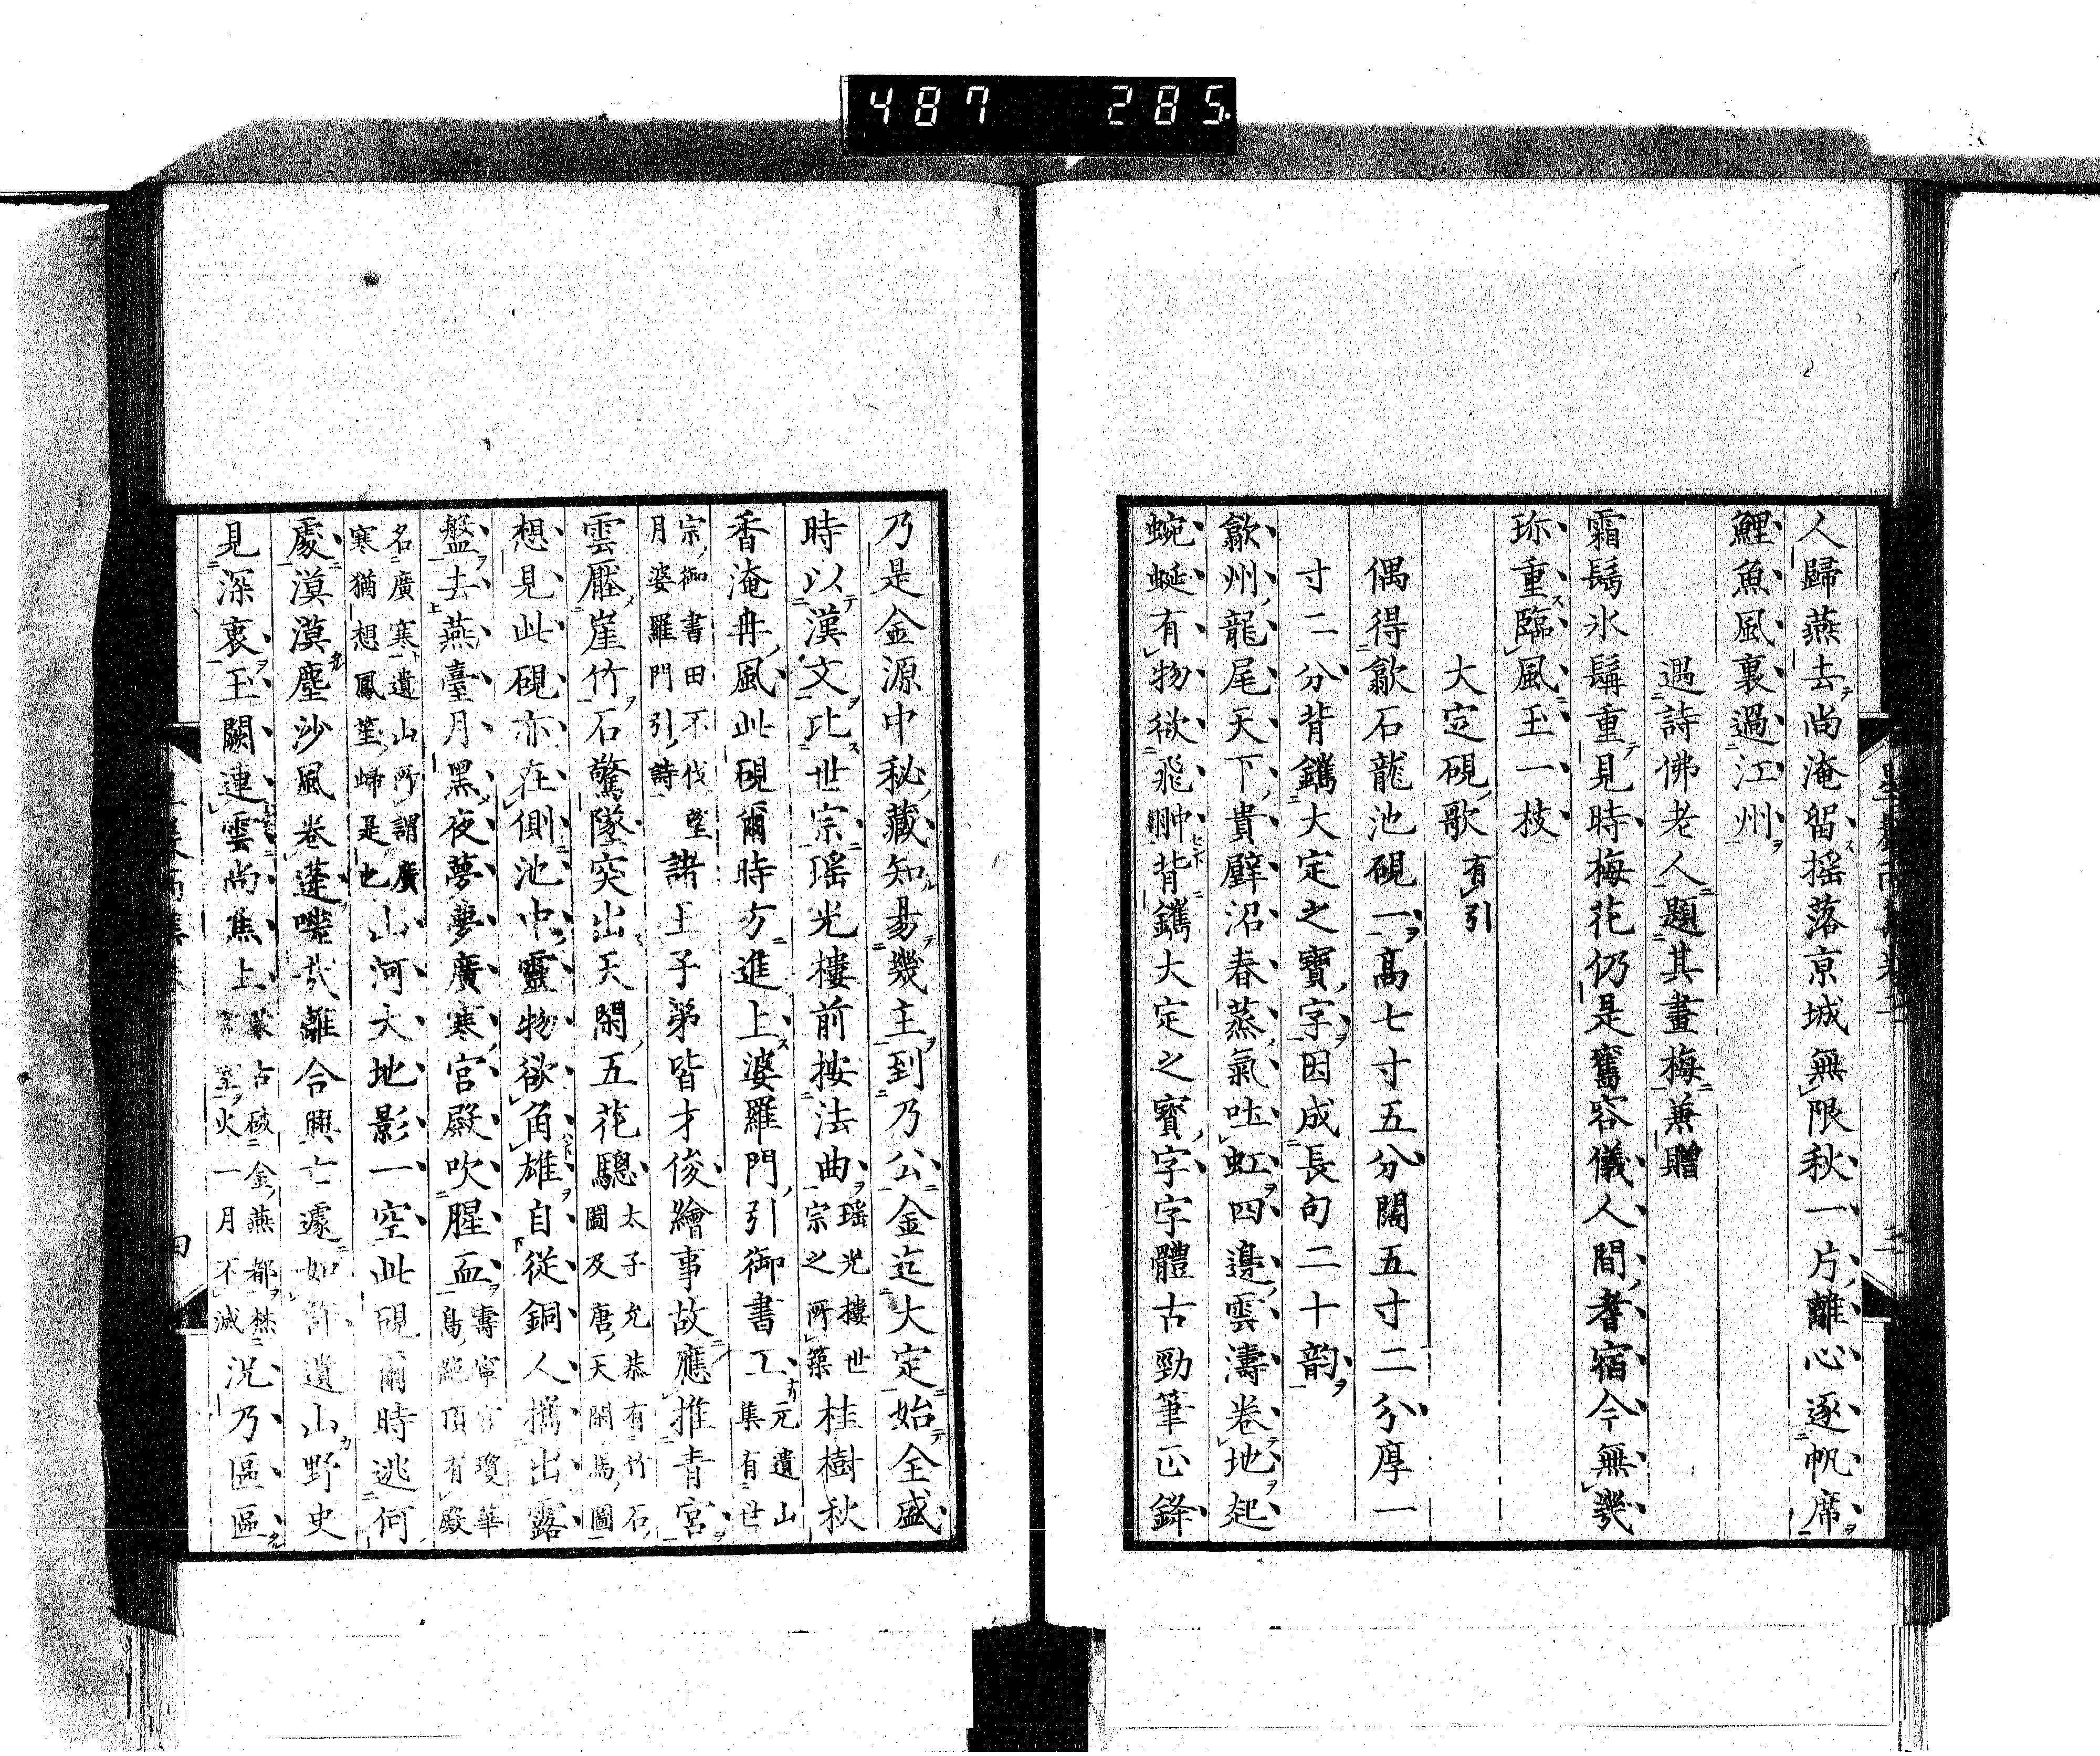 487 285
人歸燕去尚淹留搖落京城無限秋一片離心逐帆席
鯉魚風裏過江州
遇詩佛老人題其畫梅兼贈
霜鬍氷鬚重見時梅花仍是舊容儀人間耆宿今無幾
珎重臨風玉一枝
大定硯歌有引
偶得歙石龍池硯一高七寸五分闊五寸二分厚一
寸二分背鐫大定之寶字因成長句二十韵
歙州龍尾天下貴壁沼春蒸氣吐虹四邊雲濤卷地起
蜿蜒有物欲飛翀背鐫大定之寶字字體古勁筆正鋒
乃是金源中秘藏知易幾主到乃公金迄大定始全盛
時以漢文比世宗瑤光樓前按法曲瑤光樓世宗之所築桂樹秋
香淹冉風此硯爾時方進上婆羅門引御書工元遺山集有世
宗御書田不伐望月婆羅門引詩諸王子弟皆才俊繪事故應推青宮
雲壓崖竹石驚墜突出天閑五花驄太子允恭有竹石圖及唐天閑馬圖
想見此硯亦在側池中靈物欲角雄自從銅人攜出露
盤去燕臺月黑夜夢夢廣寒宮殿吹腥血壽寧宮瓊華島絕頂有殿
名廣寒遺山所謂廣寒猶想鳳笙歸是也山河大地影一空此硯爾時逃何
處漠漠塵沙風卷蓬嗟哉離合興亡遽如許遺山野史
見深衷玉闕連雲尚焦土蒙古破金燕都焚宮室火一月不滅況乃區區